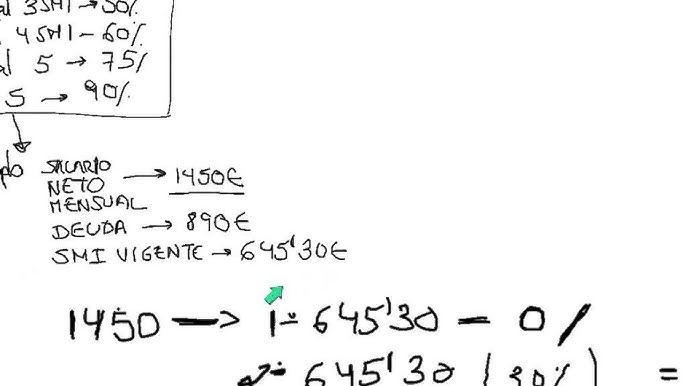 al 3SMI → 50%
4 SMI - 60%
al 5 → 75%
5 → 90%
SALARIO
NETO → 1450€
MENSUAL
DEUDA → 890€
SMI VIGENTE → 645'30€
1450 → 1º 645'30 - 0%
2º 645'30 (30%) =